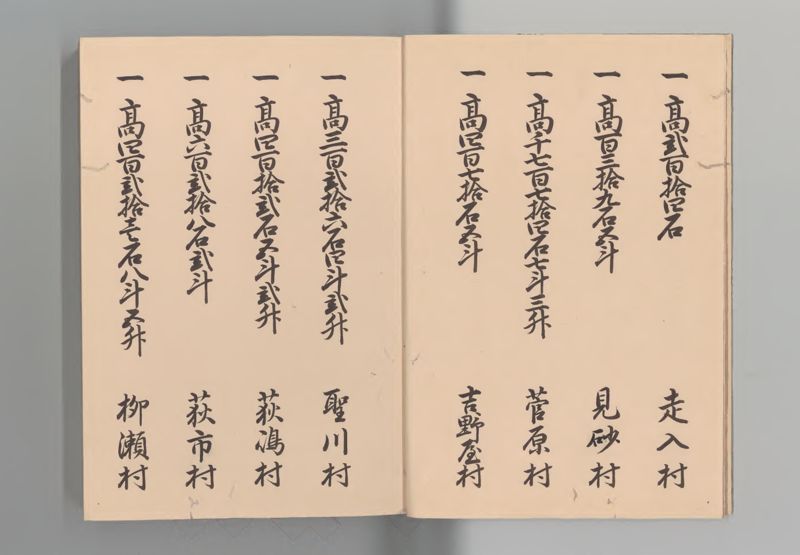 一 高弐百拾四石 走入村
一 高百三拾九石五斗 見砂村
一 高千七百七拾四石七斗三升 菅原村
一 高四百七拾石五斗 吉野屋村
一 高三百弐拾六石四斗弐升 聖川村
一 高四百拾弐石五斗弐升 荻嶋村
一 高六百弐拾八石弐斗 荻市村
一 高四百弐拾壱石八斗五升 柳瀬村